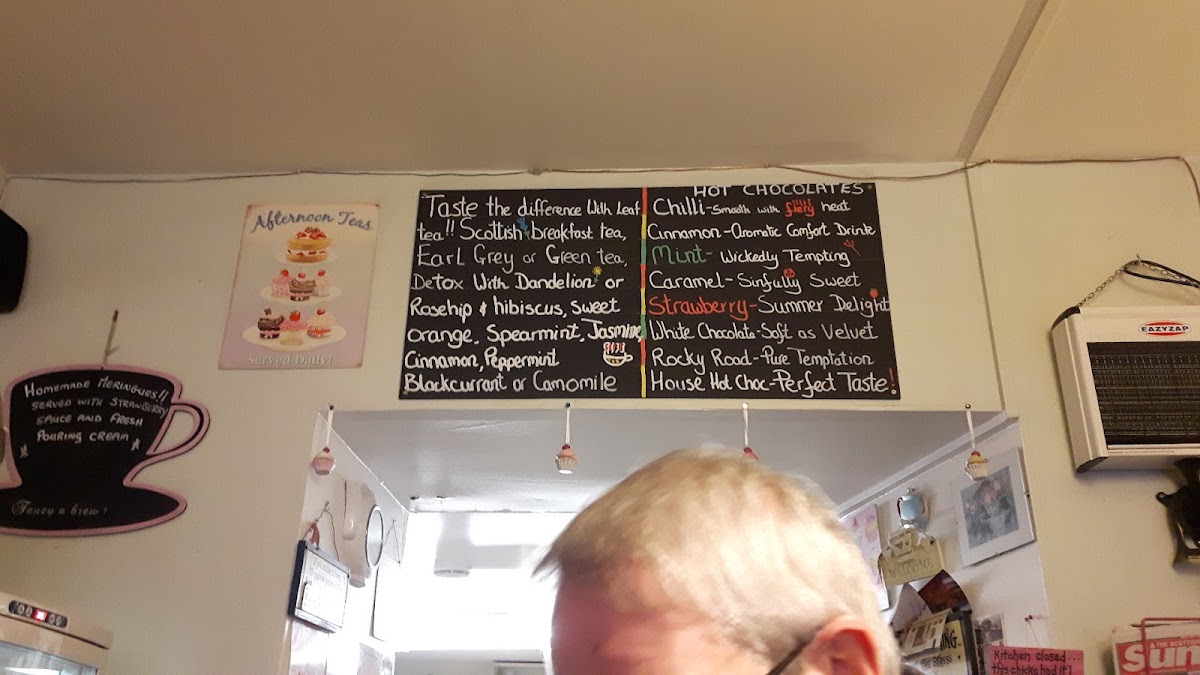 Afternoon Teas
Served Daily!
Taste the difference With Leaf
tea!! Scottish breakfast tea,
Earl Grey or Green tea,
Detox With Dandelion or
Rosehip & hibiscus, Sweet
orange, Spearmint, Jasmine,
Cinnamon, Peppermint
Blackcurrant or Camomile
HOT CHOCOLATES
Chilli - Smooth with fiery heat
Cinnamon - Aromatic Comfort Drink
Mint - Wickedly Tempting
Caramel - Sinfully Sweet
Strawberry - Summer Delight
White Chocolate - Soft as Velvet
Rocky Road - Pure Temptation
House Hot Choc - Perfect Taste!
Homemade Meringues!!
Served with Strawberry
Sauce and Fresh
Pouring Cream
Fancy a brew?
EAZYZAP
WELCOME
Kitchen closed...
this chicks had it!
Sun